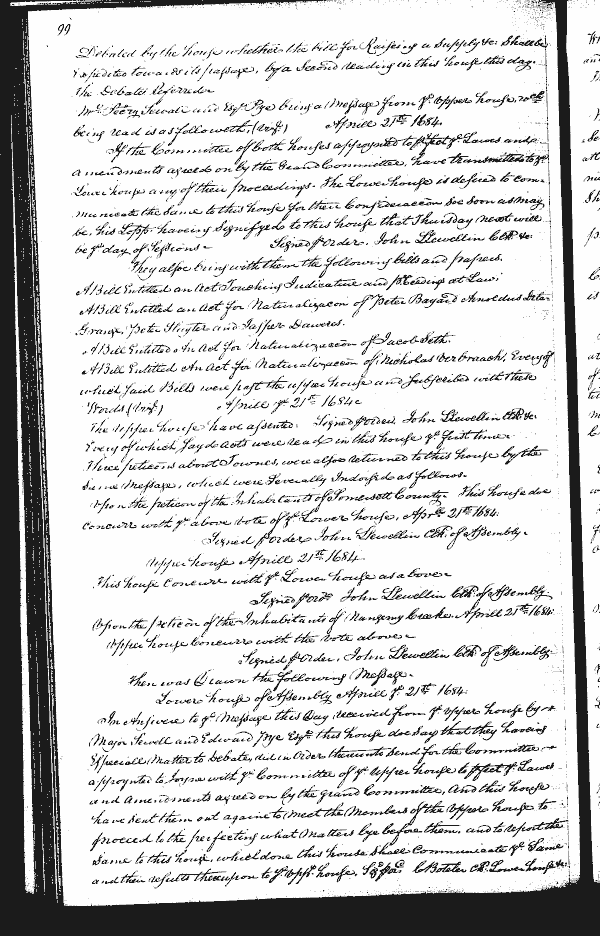 99
Debated by the house whether the bill for Raising a Supply &c: Shall be
Expedited towards its passage, by a Second reading in this house this day.
the Debate Referred
being read is as followeth, (Vizt) Aprill 21th 1684.
If the Committee of both houses appoynted to pfect ye Lawes and
amendments agreed on by the Grand Committee, have transmitted to ye
Lower house any of their proceedings. The Lower house is desired to com-
municate the same to this house for their Consideracon soe soon as may
be, his Lopp: haveing Signifyed to this house that Thursday next will
be ye day of Sessions Signed p order, John Llewellin Clk &c
They alsoe bring with them the following bills and papers.
A Bill Entitled an Act Touching Judicature and pleedings at Law:
A Bill Entitled an Act for Naturalizacon of Peter Bayard Arnoldus Dela
Grange, Peter Sluyter and Jasper Dawers.
A Bill Entitled An Act for Naturalizacon of Jacob Seth.
A Bill Entitled An Act for Naturalizacon of Nicholas Verbraack, Every of
which said Bills were past the upper house and subscribed with these
Words (Vizt) Aprill ye 21th 1684
The upper house have assented. Signed p order, John Llewellin Clk &c
Every of which sayd Acts were read in this house ye first time.
Three peticons about Townes, were alsoe returned to this house by the
same Message, which were Severally Indorsed as follows.
Upon the peticon of the Inhabitants of Somersett County This house doe
concurr with ye above vote of ye Lower house, Apr 21th 1684.
Signed p order John Llewellin Clk of Assembly.
Upper house Aprill 21th 1684.
This house Concurr with ye Lower house as above
Signed p ordr John Llewellin Clk of Assembly
Upon the peticon of the Inhabitants of Nangemy Creeke Aprill 21th 1684
Upper house Concurr with the vote above
Signed p Order, John Llewellin Clk of Assembly
Then was Drawn the following Message.
Lower house of Assembly Aprill ye 21th 1684.
In Answere to ye Message this day received from ye Upper house by
Major Sewell and Edward Pye Esqr this house doe say that they haveing
Especiall Matter to Debate, did in Order thereunto Send for the Committee
appoynted to Joyne with ye Committee of ye Upper house to pfect ye Lawes
and Amendments agreed on by the Grand Committee, And this house
have Sent them out againe to meet the Members of the Upper house to
proceed to the perfecting what Matters lye before them, and to report the
Same to this house, which done this house shall Communicate ye Same
and their results thereupon to ye Uppr house. C Boteler Clk Lower house &c